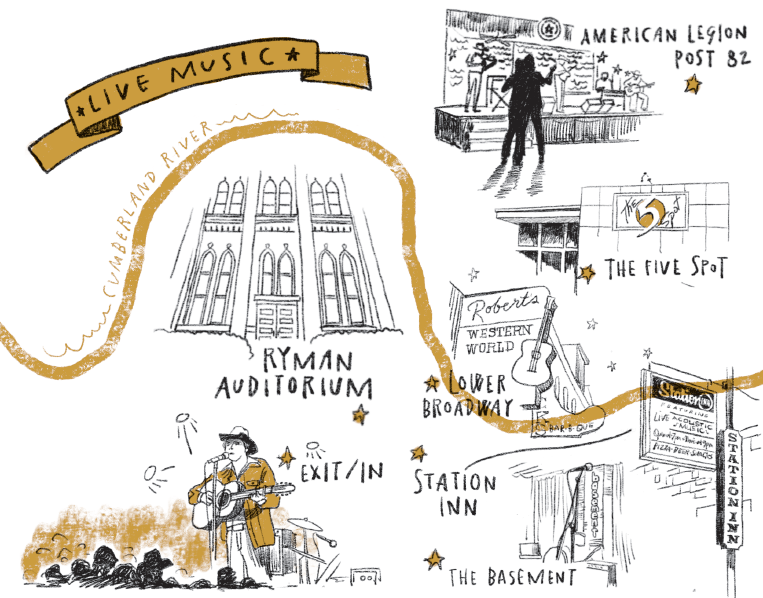 LIVE MUSIC
CUMBERLAND RIVER
AMERICAN LEGION
POST 82
THE
5
Spot
THE FIVE SPOT
RYMAN
AUDITORIUM
Robert's
WESTERN
WORLD
LOWER
BROADWAY
BAR-B-QUE
Station
INN
FEATURING
LIVE ACOUSTIC
MUSIC!
PIZZA-BEER-SNACKS
STATION INN
STATION
INN
EXIT/IN
basement
THE BASEMENT